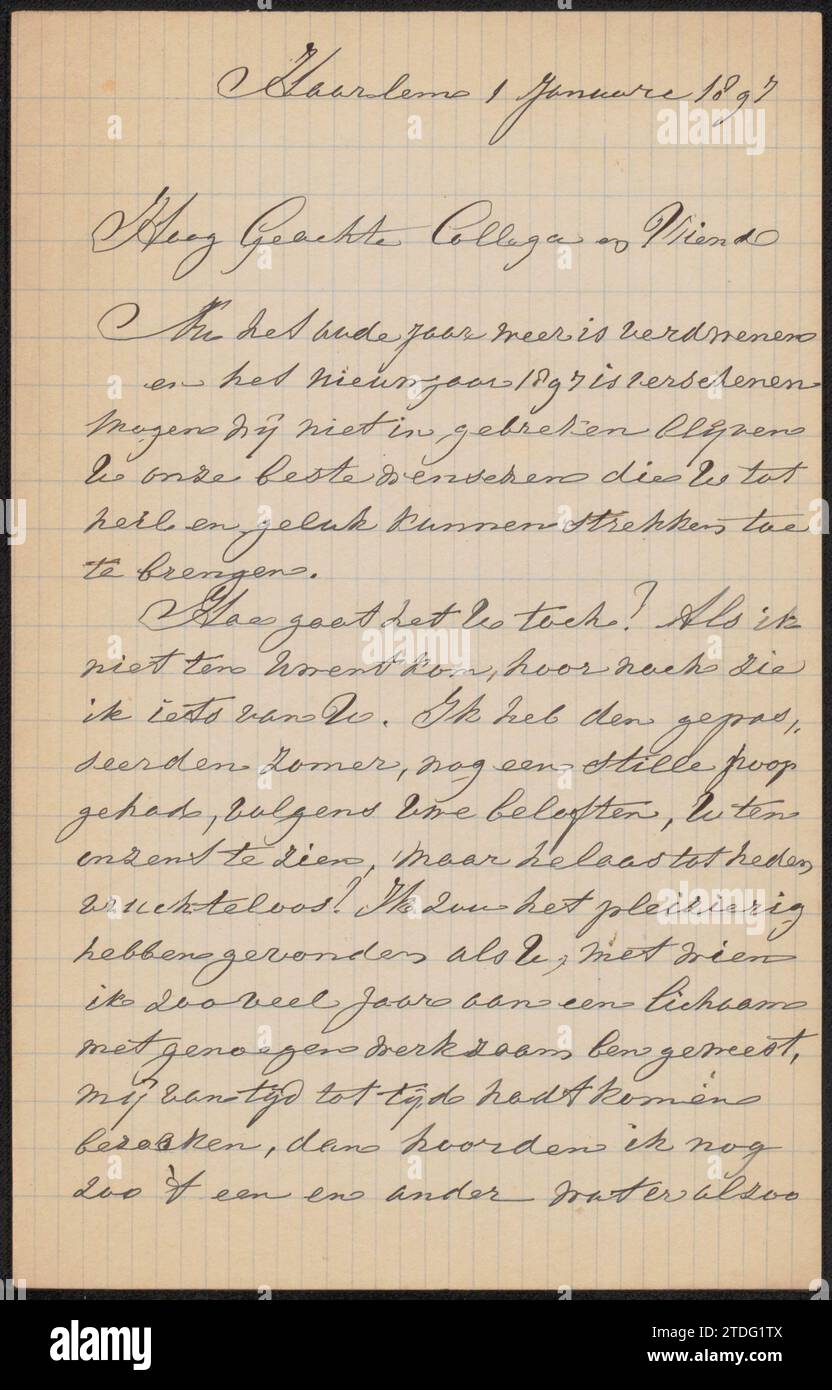 Haarlem 1 Januari 1897
Hoog Geachte Collega en Vriend
Nu het oude jaar weer is verdwenen
en het nieuwjaar 1897 is verschenen
mogen wij niet in gebreken blijven
U onze beste wenschen die U tot
heil en geluk kunnen strekken toe
te brengen.
Hoe gaat het U toch? Als ik
niet ten Uwent kom, hoor noch zie
ik iets van U. Ik heb den gepas„
seerden zomer, nog een stille hoop
gehad, volgens Uwe beloften, U ten
onzent te zien, maar helaas tot heden
vruchteloos! Ik zou het pleizierig
hebben gevonden als U, met wien
ik zoo veel jaar aan een lichaam
met genoegen werkzaam ben geweest,
mij van tijd tot tijd hadt komen
bezoeken, dan hoorden ik nog
zoo 't een en ander wat er alzoo
alamy
Image ID: 2TDG1TX
www.alamy.com